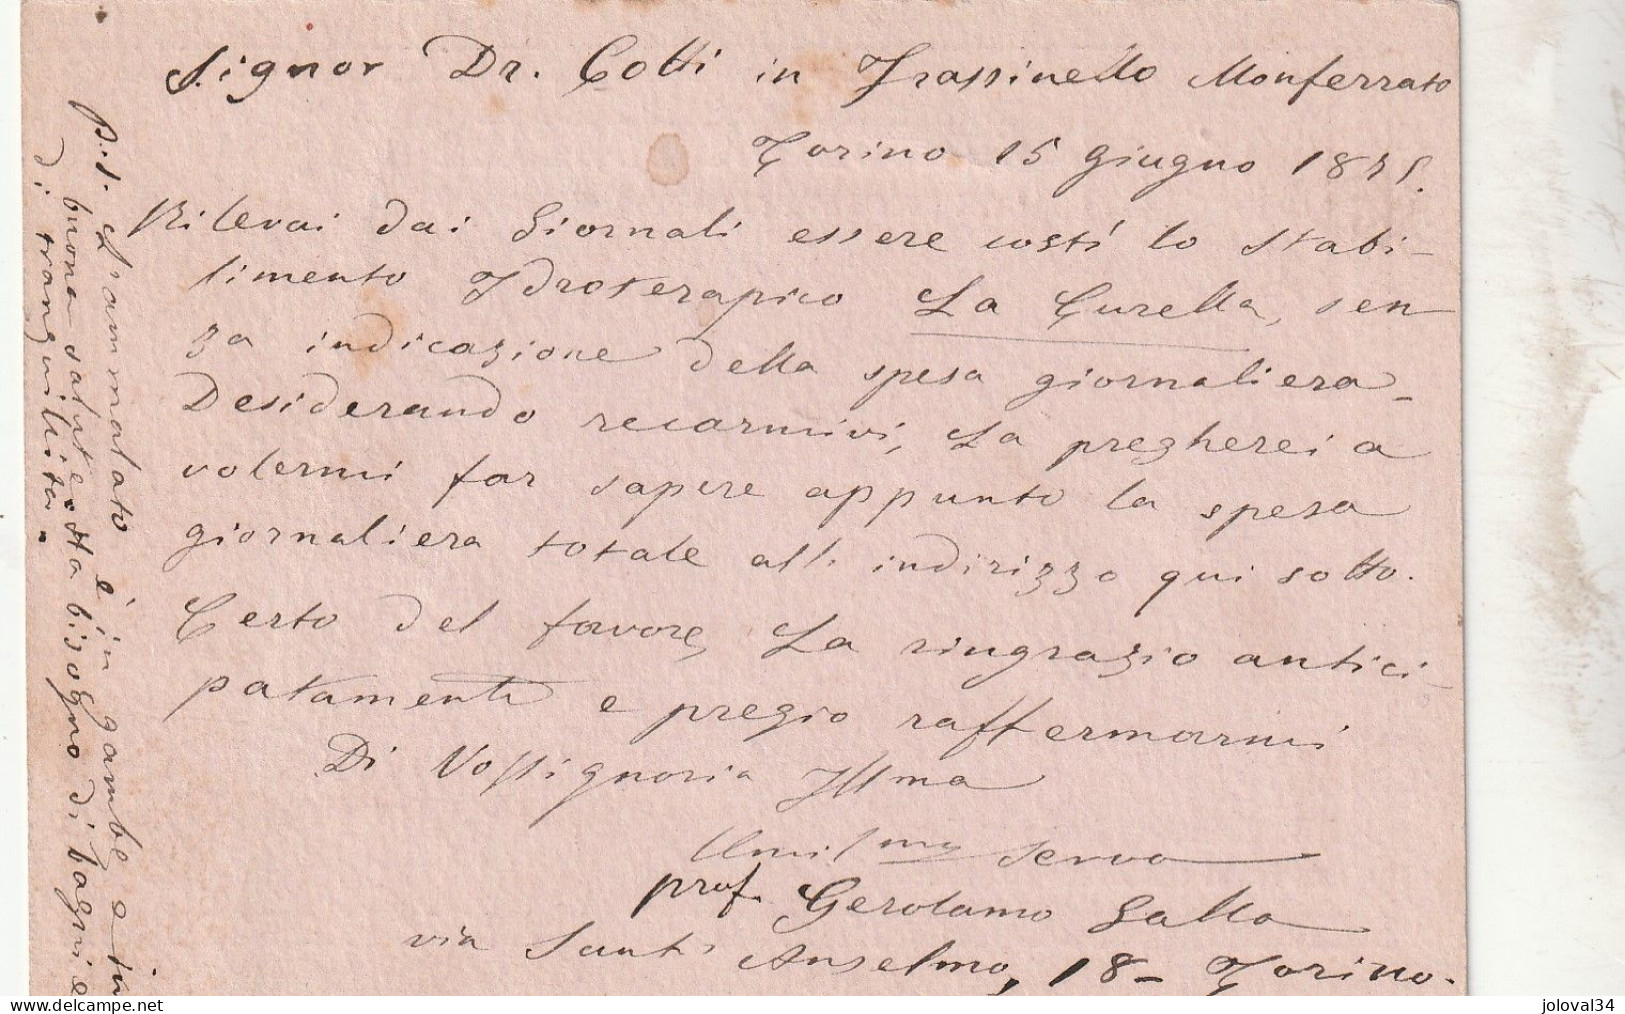 Signor Dr. Cotti in Frassinello Monferrato
Torino 15 giugno
Rilevai dai Giornali essere costí lo Stabi-
limento Idroterapico La Curella, sen
za indicazione della spesa giornaliera_
Desiderando recarmivi, La pregherei a
volermi far sapere appunto la spesa
giornaliera totale all' indirizzo qui sotto.
Certo del favore, La ringrazio antici-
patamente e pregio raffermarmi
Di Vossignoria Illma
Umilmo servo
prof. Gerolamo Galla
via Sant' Anselmo, 18 - Torino.
P.S. L'ammalato è in gambe e in
buona salute. Ha bisogno di bagni e
di tranquillità.
joloval34